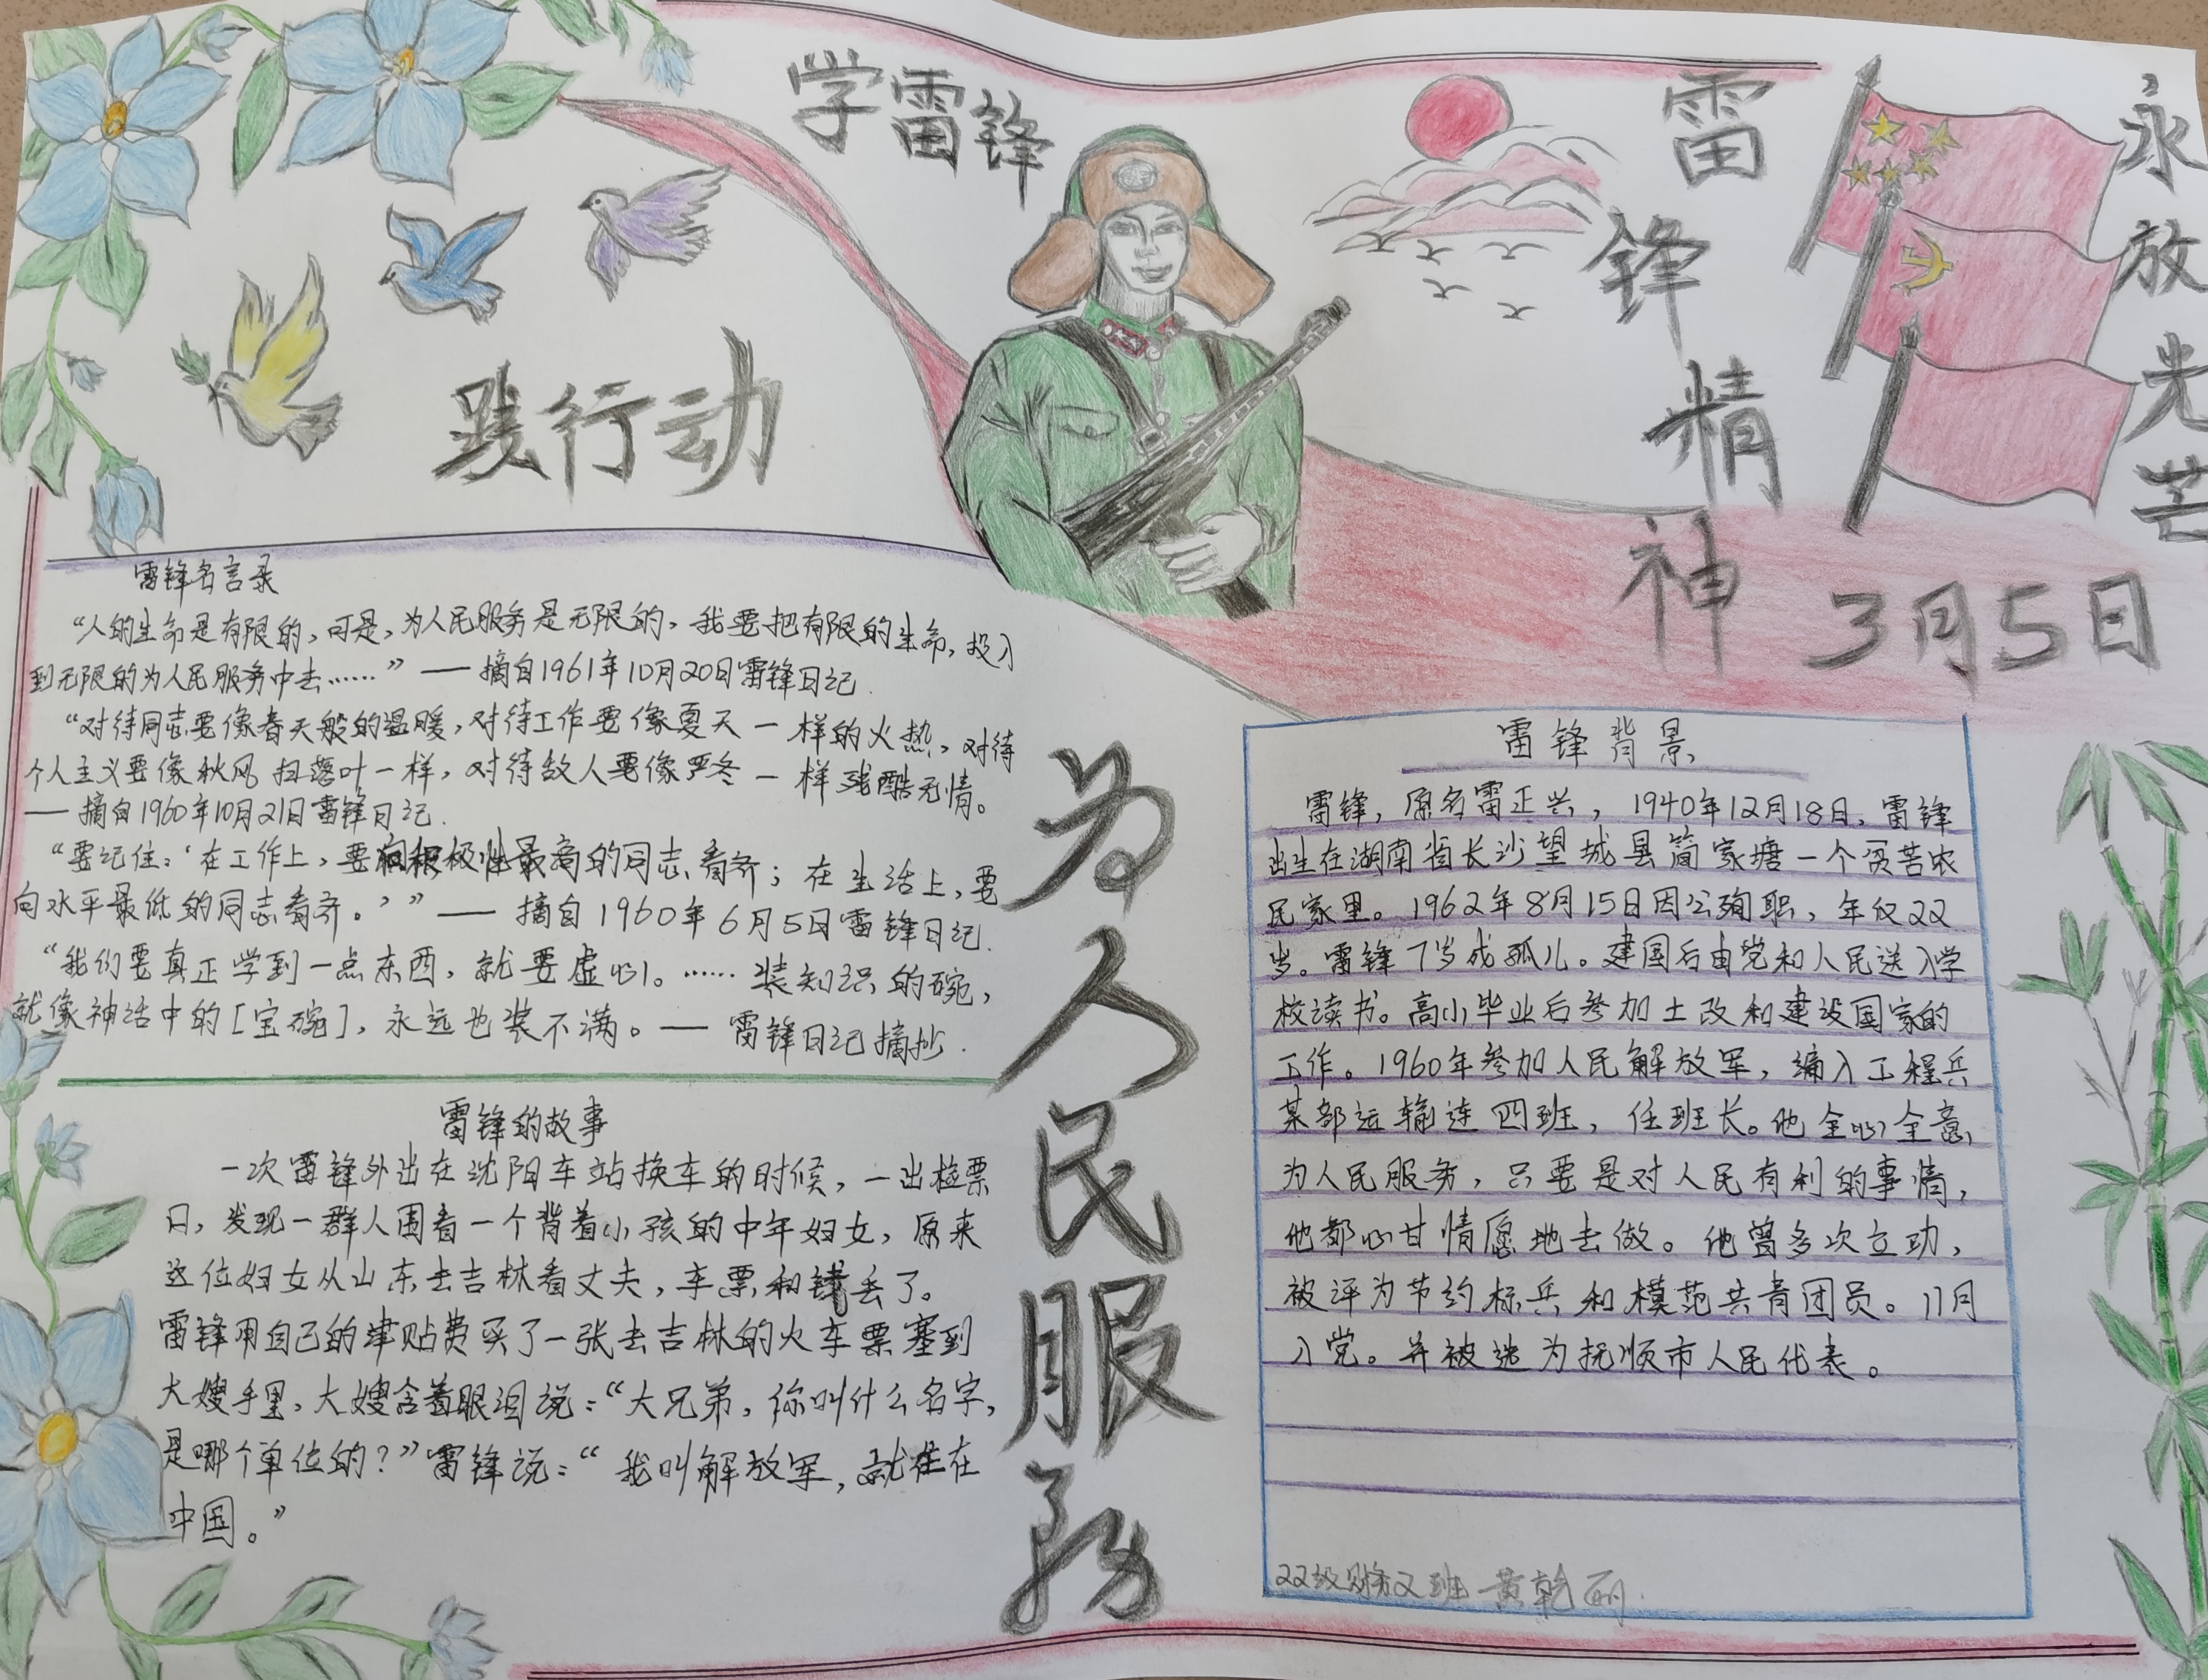 学雷锋
践行动
雷锋精神
永放光芒
3月5日
雷锋名言录
“人的生命是有限的，可是，为人民服务是无限的，我要把有限的生命，投入
到无限的为人民服务中去……”——摘自1961年10月20日雷锋日记.
“对待同志要像春天般的温暖，对待工作要像夏天一样的火热，对待
个人主义要像秋风扫落叶一样，对待敌人要像严冬一样残酷无情。
——摘自1960年10月21日雷锋日记.
“要记住：‘在工作上，要向积极性最高的同志看齐；在生活上，要
向水平最低的同志看齐。’”——摘自1960年6月5日雷锋日记.
“我们要真正学到一点东西，就要虚心。……装知识的碗，
就像神话中的[宝碗]，永远也装不满。——雷锋日记摘抄.
雷锋的故事
一次雷锋外出在沈阳车站换车的时候，一出检票
口，发现一群人围着一个背着小孩的中年妇女，原来
这位妇女从山东去吉林看丈夫，车票和钱丢了。
雷锋用自己的津贴费买了一张去吉林的火车票塞到
大嫂手里，大嫂含着眼泪说：“大兄弟，你叫什么名字，
是哪个单位的？”雷锋说：“我叫解放军，就住在
中国。”
为人民服务
雷锋背景
雷锋，原名雷正兴，1940年12月18日，雷锋
出生在湖南省长沙望城县简家塘一个贫苦农
民家里。1962年8月15日因公殉职，年仅22
岁。雷锋7岁成孤儿。建国后由党和人民送入学
校读书。高小毕业后参加土改和建设国家的
工作。1960年参加人民解放军，编入工程兵
某部运输连四班，任班长。他全心全意，
为人民服务，只要是对人民有利的事情，
他都心甘情愿地去做。他曾多次立功，
被评为节约标兵和模范共青团员。11月
入党。并被选为抚顺市人民代表。
22级财务2班 黄乾丽.